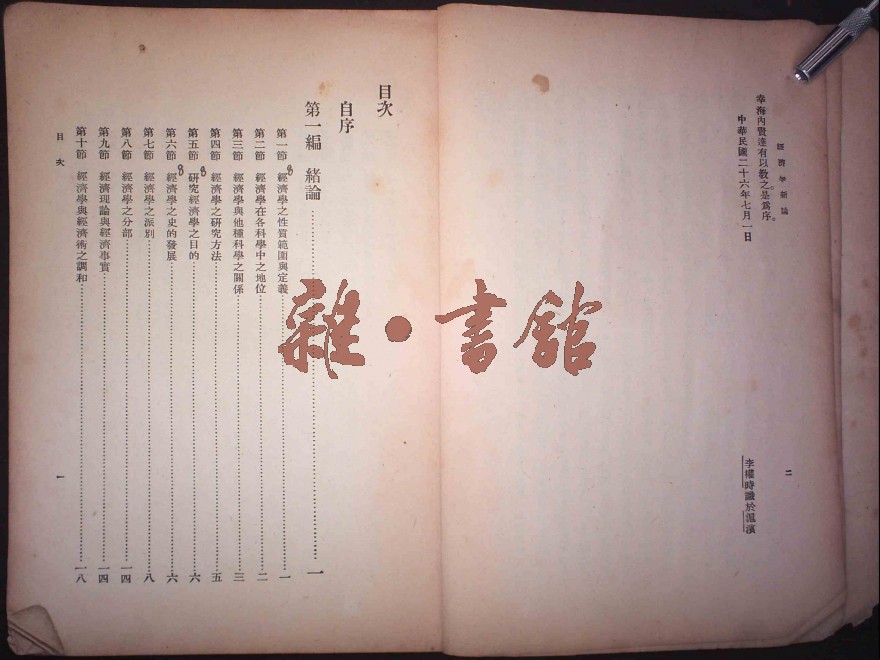 經濟學新論
二
幸海內賢達有以教之。是為序。
中華民國二十六年七月一日
李權時識於滬濱
目次
自序
第一編 緒論 一
第一節 經濟學之性質範圍與定義 一
第二節 經濟學在各科學中之地位 二
第三節 經濟學與他種科學之關係 三
第四節 經濟學之研究方法 五
第五節 研究經濟學之目的 六
第六節 經濟學之史的發展 六
第七節 經濟學之派別 八
第八節 經濟學之分部 一四
第九節 經濟理論與經濟事實 一四
第十節 經濟學與經濟術之調和 一八
目次
一
雜·書館